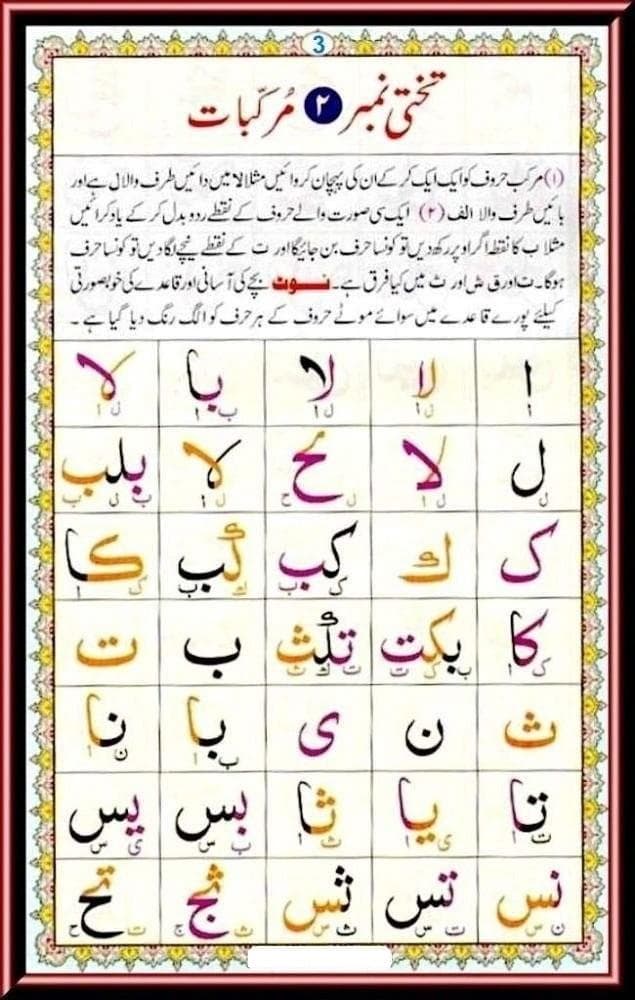 3
تختی نمبر ۲ مُرکّبات
(۱) مرکب حروف کو ایک ایک کر کے ان کی پہچان کروائیں مثلا لا میں دائیں طرف والا ل ہے اور
بائیں طرف والا الف (۲) ایک سی صورت والے حروف کے نقطے ردوبدل کر کے یاد کرائیں
مثلا ب کا نقطہ اگر اوپر رکھ دیں تو کونسا حرف بن جائیگا اور ت کے نقطے نیچے لگا دیں تو کونسا حرف
ہوگا۔ ت اور ق ش اور ث میں کیا فرق ہے۔ نوٹ بچے کی آسانی اور قاعدے کی خوبصورتی
کیلئے پورے قاعدے میں سوائے موٹے حروف کے ہر حرف کو الگ رنگ دیا گیا ہے ۔
ا لا لا با لا
ل ا ل ا ب ا ل ا
ل لا لح لا بلب
ل ل ا ل ح ل ا ب ل ب
ک ك کب گب کا
ک ب ك ب ک ا
کا بکت تلث ب ت
ک ا ب ک ت ت ك ث
ث ن ی با نا
ب ا ن ا
تا یا ثا بس یس
ت ا ی ا ث ا ب س ی س
نس تس ثس ثج تح
ن س ت س ث س ث ج ت ح